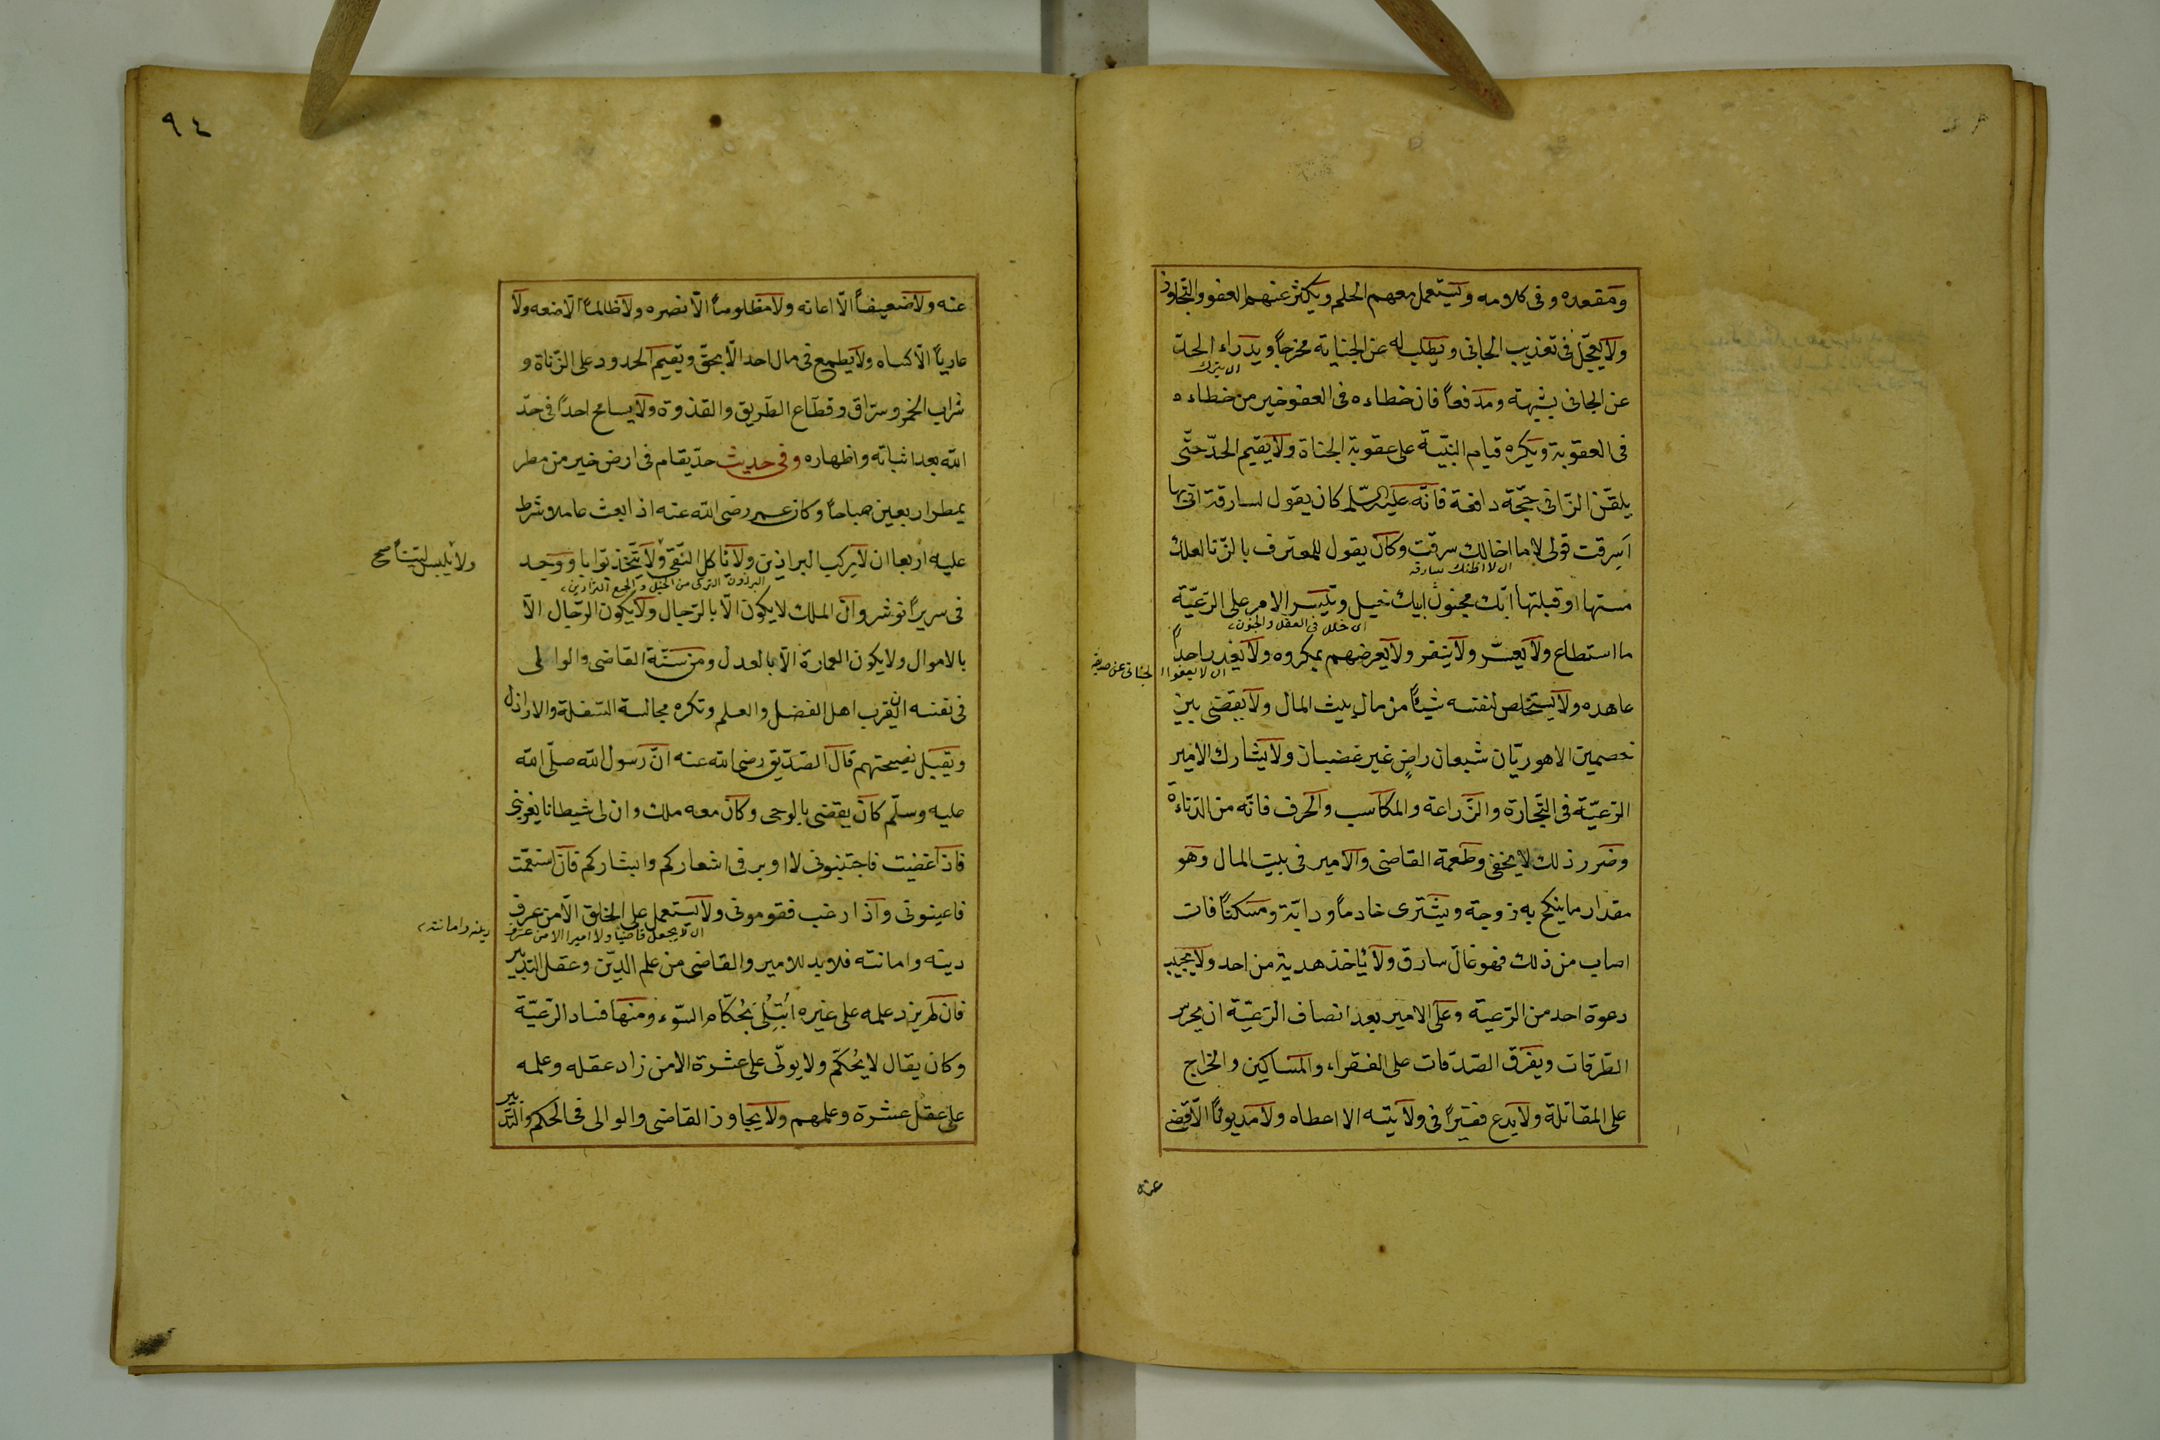 ومقعده وفى كلامه ويستعمل معهم الحلم ويكثر عنهم العفو والتجاوز
ولا يعجّل فى تعذيب الجانى ويطلب له عن الجناية مخرجاً ويدراء الحدّ
اى يترك
عن الجانى بشبهة ومدفعاً فان خطاءه فى العفو خير من خطاءه
فى العقوبة ويكره قيام البيّنة على عقوبة الجناة ولا يقيم الحدّ حتّى
يلقّن الزّانى حجّة دافعة فانّه عليه السّلم كان يقول لسارقة اتى بها
اَسرقت قولى لا ما اخالك سرقت وكان يقول للمعترف بالزّنا لعلك
اى لا اظنك سارقه
مستها او قبلتها ابّك مجنون ابيك خبل وييسر الامر على الرّعيّة
اى خلل فى العقل والجنون
ما استطاع ولا يعسّر ولا ينفر ولا يعرضهم بمكروه ولا يغدر احداً
عاهده ولا يستخلص لنفسه شيئاً من مال بيت المال ولا يقضى بين
خصمين الا هو ريّان شبعان راضٍ غير غضبان ولا يشارك الامير
الرّعيّة فى التّجارة والزّراعة والمكاسب والحرف فانّه من الدّناءة
وضرر ذلك لا يخفى وطعمة القاضى والامير فى بيت المال وهو
مقدار ما ينكح به زوجة ويشترى خادماً ودابّة ومسكناً فان
اصاب من ذلك فهو غالّ سارق ولا يأخذ هدية من احد ولا يجيب
دعوة احد من الرّعية وعلى الامير بعد انصاف الرّعيّة ان يحرس
الطّرقات ويفرّق الصّدقات على الفقراء والمساكين والخراج
على المقاتلة ولا يدع فقيراً فى ولايته الا اعطاه ولا مديوناً الّا قضى
عنه
٩٤
عنه ولا ضعيفاً الّا اعانه ولا مظلوماً الّا نصره ولا ظالماً الّا منعه ولا
عارياً الّا كساه ولا يطمع فى مال احد الّا بحقّ ويقيم الحدود على الزّناة و
شراب الخمر وسرّاق وقطّاع الطّريق والقذوة ولا يسامح احداً فى حدّ
الله بعد اثباته واظهاره وفى حديث حدّ يقام فى ارض خير من مطر
يمطر اربعين صباحاً وكان عمر رضى الله عنه اذا بعث عاملا وشرط
عليه اربعا ان لا يركب البراذين ولا يأكل النّقى ولا يتّخذ بوّابا ووجد
ولا يلبس ليّناً صح
البرذون التركى من الخيل والجمع البراذين
فى سرير انوشروان الملك لا يكون الّا بالرّجال ولا يكون الرّجال الّا
بالاموال ولا يكون العمارة الّا بالعدل ومن سنّة القاضى والوالى
فى نفسه ان يقرب اهل الفضل والعلم وتكره مجالسة السّفلة والاراذل
ويقبل نصيحتهم قال الصّدّيق رضى الله عنه انّ رسول الله صلّى الله
عليه وسلّم كان يقضى بالوحى وكان معه ملك وان لى شيطانا يغوينى
فاذا غضبت فاجتنبونى لا اوبر فى اشعاركم وابشاركم فان استقمت
فاعينونى واذا زغت فقومونى ولا يستعمل على الخلق الّا من عرف
اى لا يجعل قاضيا ولا اميرا الا من عرف
دينه وامانته
دينه وامانته فلا بد للامير والقاضى من علم الدّين وعقل التدبير
فان لم يزد علمه على غيره ابتُلى بحُكّام السّوء ومنها فساد الرّعيّة
وكان يقال لا يُحكّم ولا يولّى على عشرة الا من زاد عقله وعلمه
على عقل عشرة وعلمهم ولا يجاوز القاضى والوالى فى الحكم والتّدبير